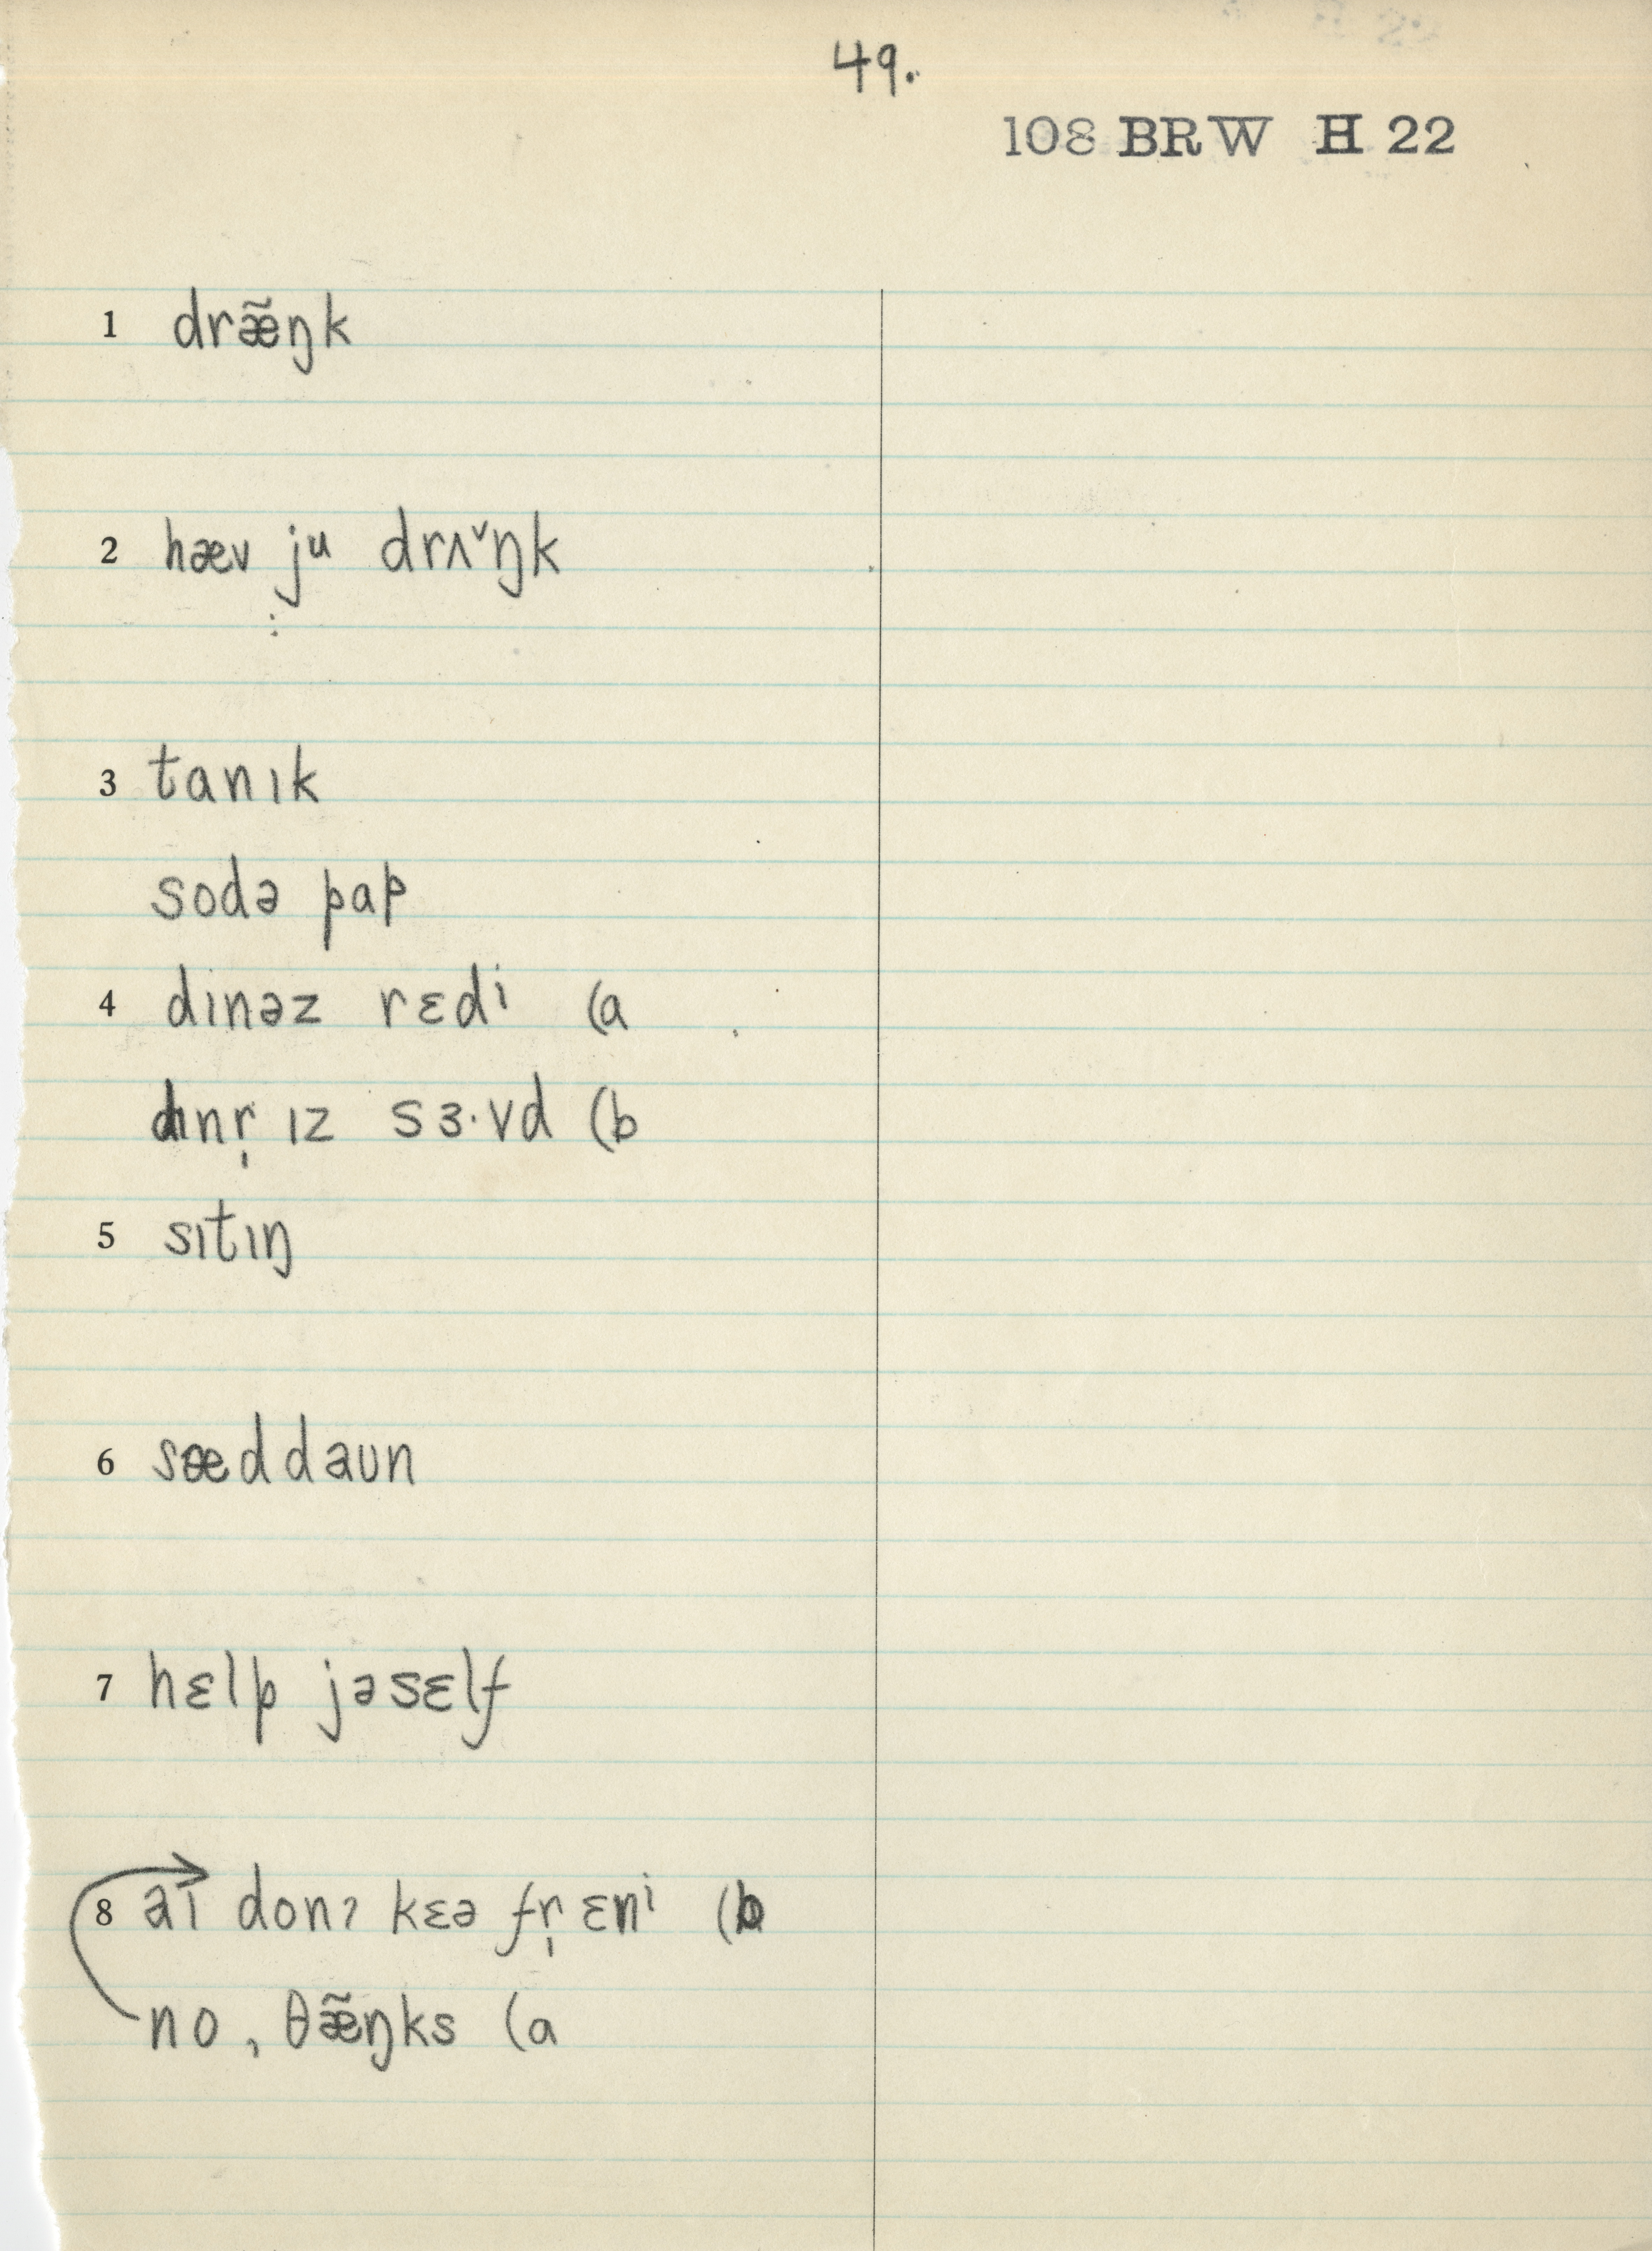 49.
108 BRW H 22
1 dræ̃ŋk
2 hæv ju drʌˇŋk
3 tanɪk
sodə pap
4 dɪnəz rɛdi (a
dɪnr̩ ɪz sɜ·vd (b
5 sɪtɪŋ
6 sæddaun
7 hɛlp jəsɛlf
8 aɪ donʔ kɛə fr̩ ɛni (b
no, θæ̃ŋks (a